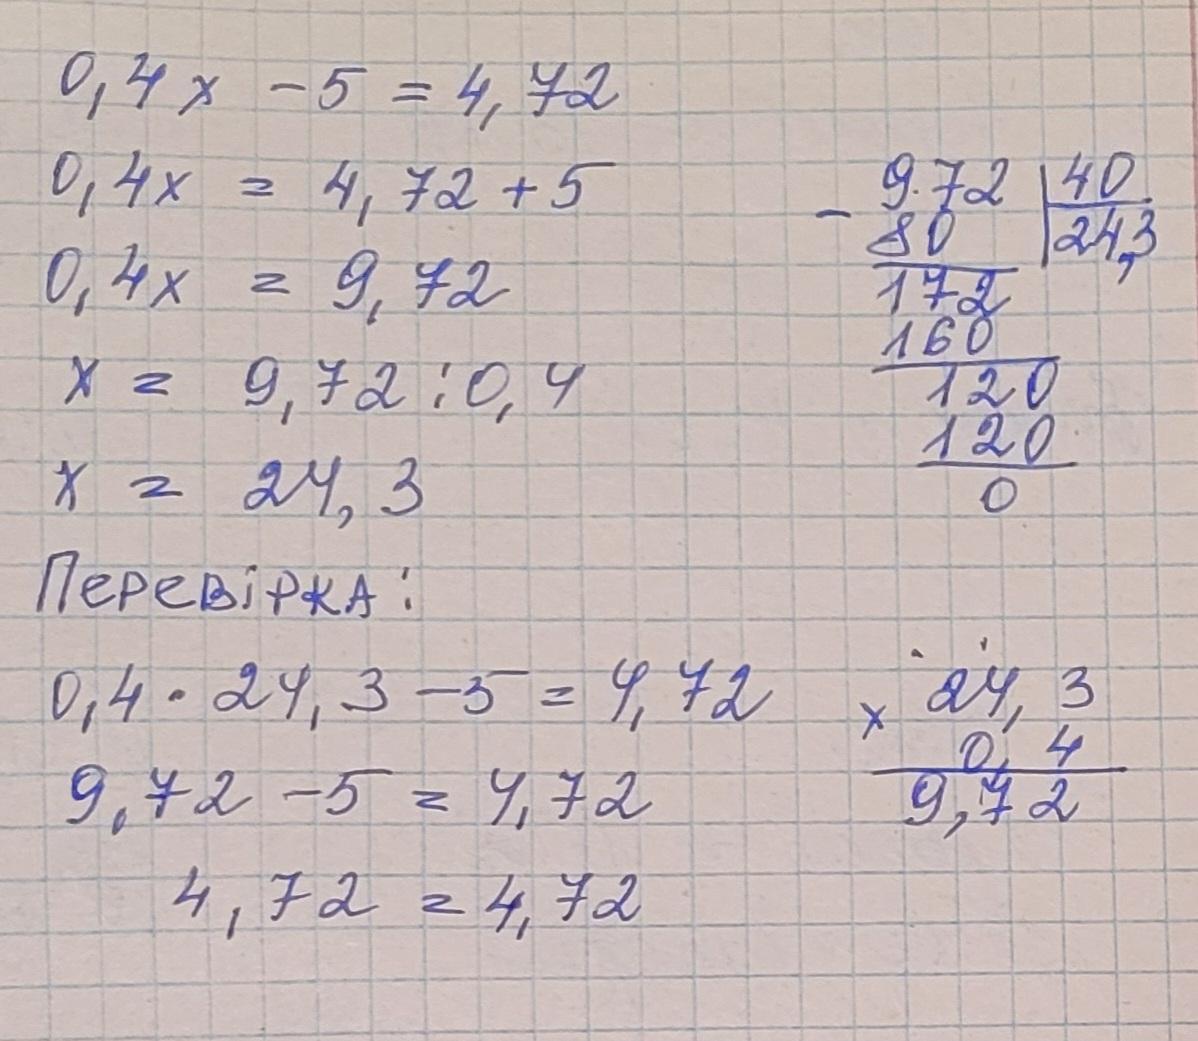 0,4x - 5 = 4,72
0,4x = 4,72 + 5
0,4x = 9,72
x = 9,72 : 0,4
x = 24,3
- 9.72 | 40
80 | 24,3
172
160
120
120
0
Перевірка:
0,4 · 24,3 - 5 = 4,72
9,72 - 5 = 4,72
4,72 = 4,72
x 24,3
0,4
9,72